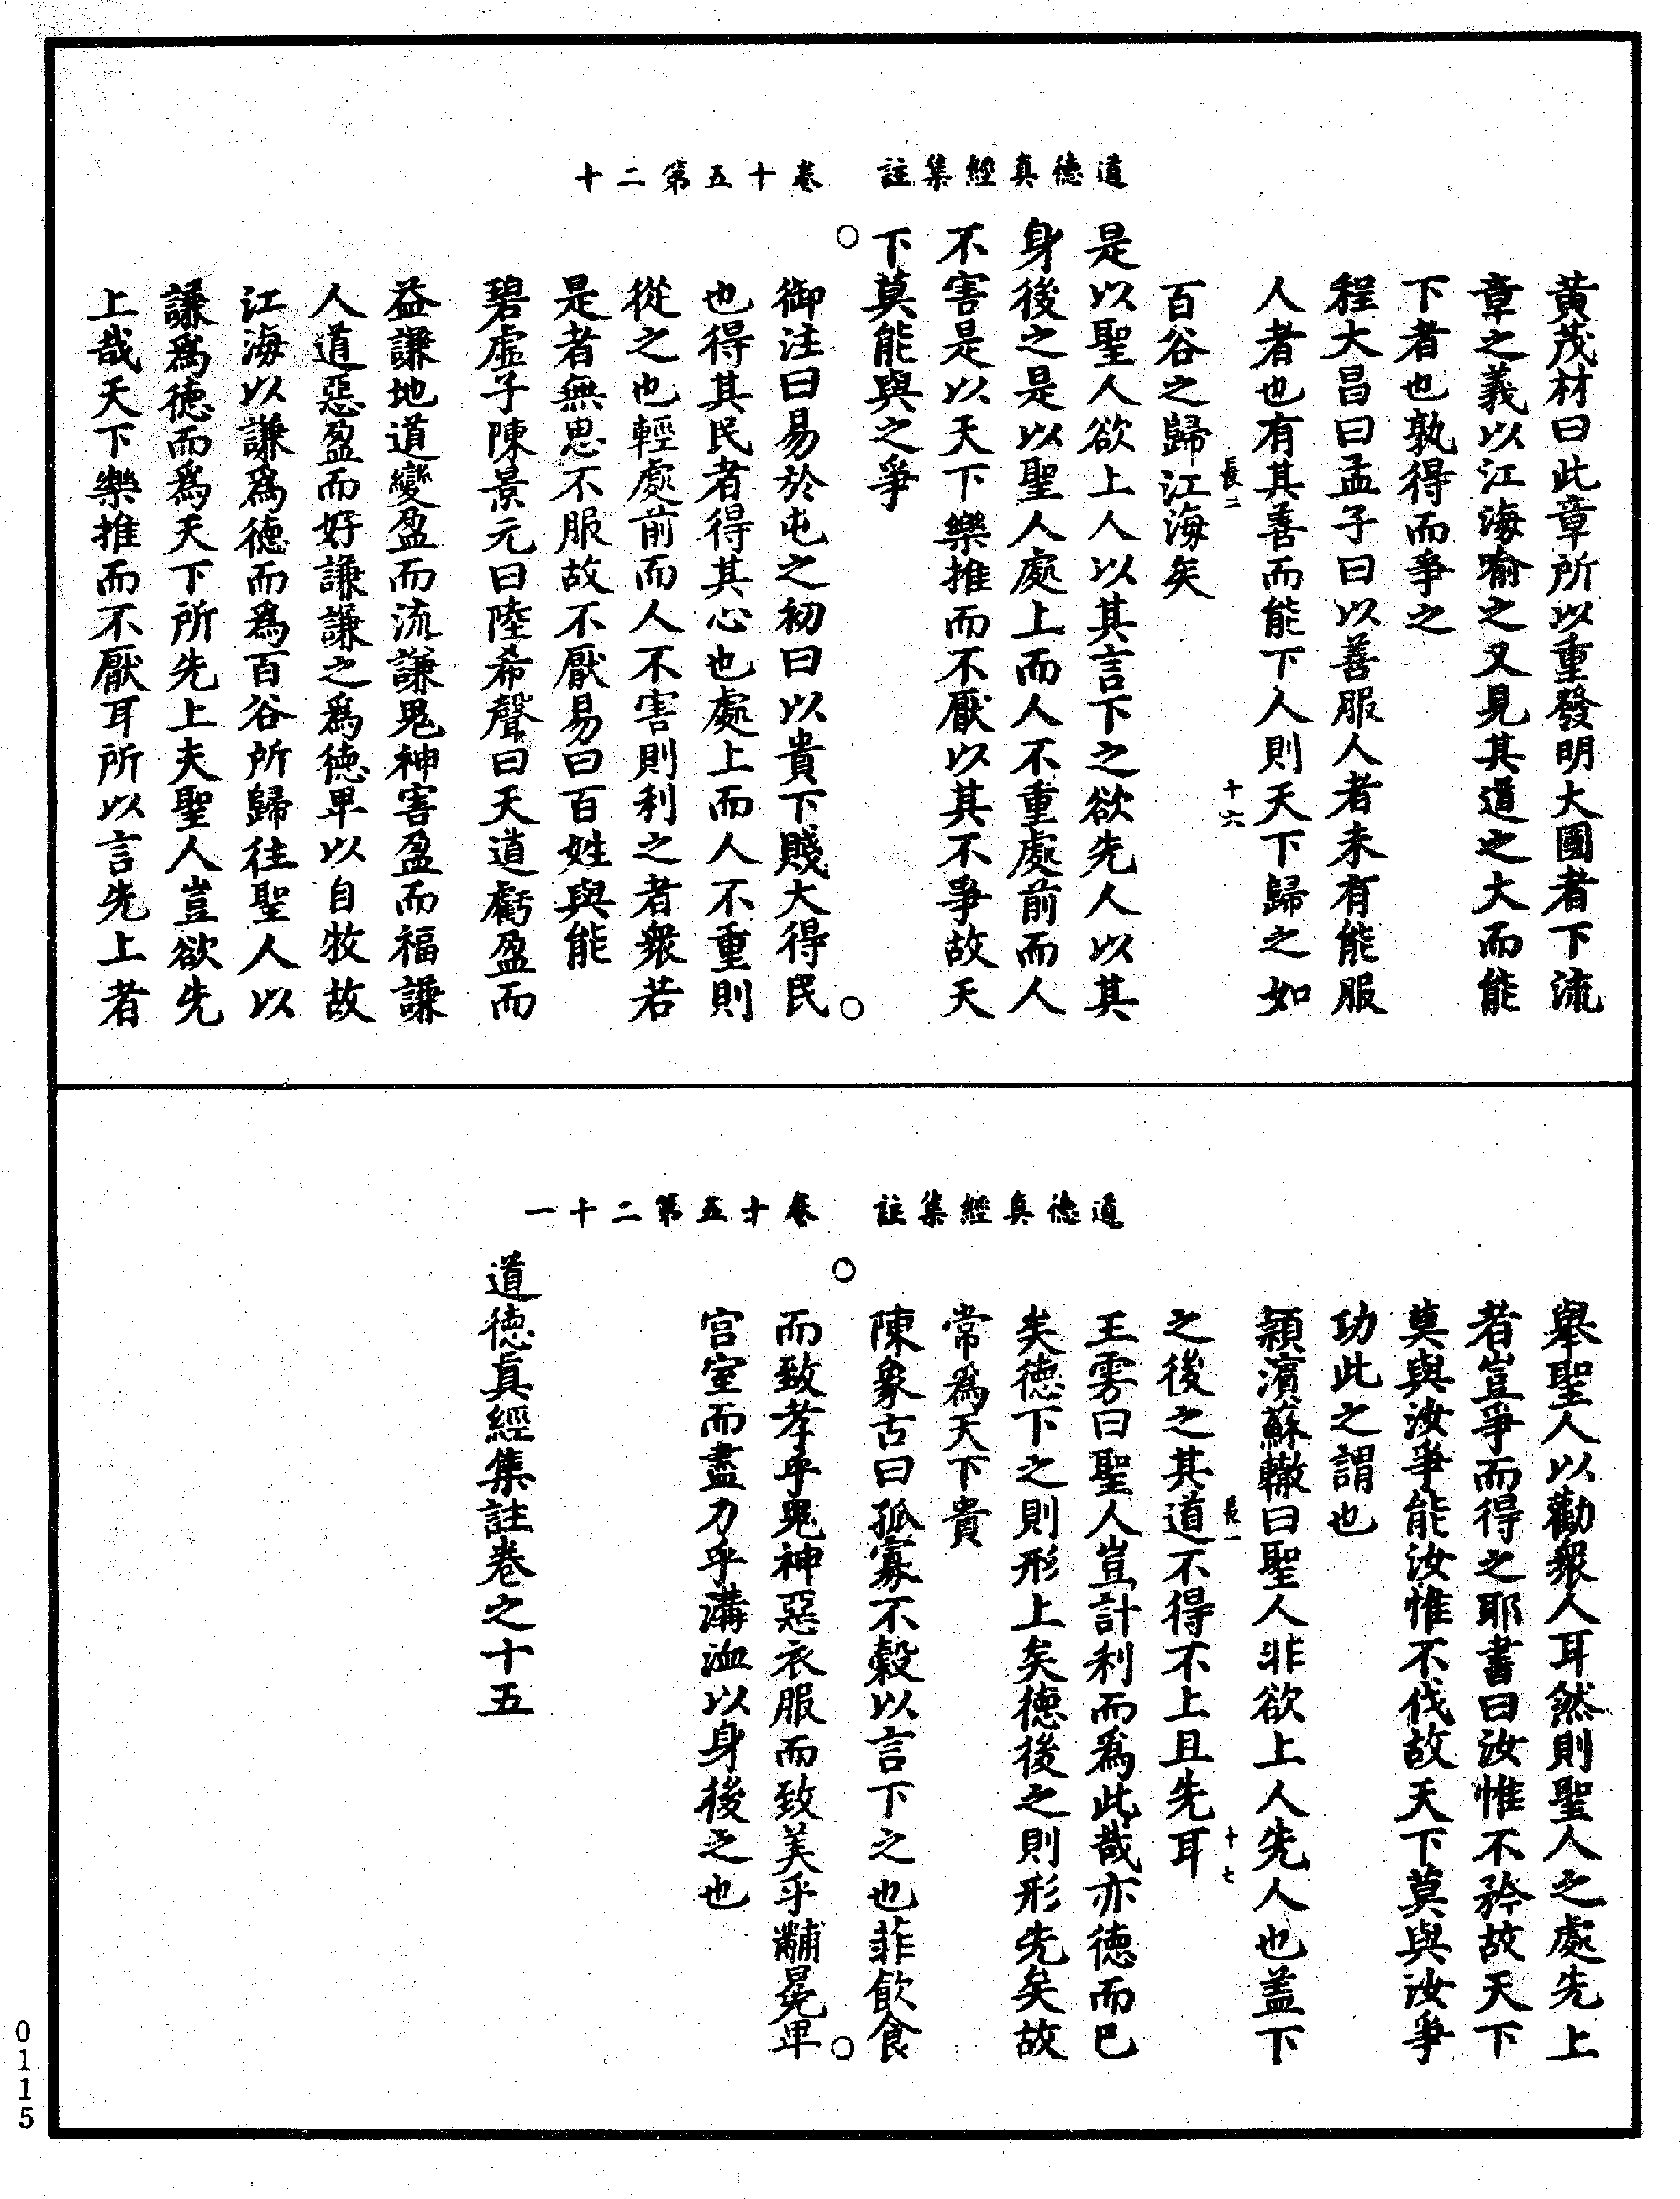 道德真經集註　卷十五第二十
黃茂材曰此章所以重發明大國者下流
章之義以江海喻之又見其道之大而能
下者也孰得而爭之
程大昌曰孟子曰以善服人者未有能服
人者也有其善而能下人則天下歸之如
長二　十六
百谷之歸江海矣
是以聖人欲上人以其言下之欲先人以其
身後之是以聖人處上而人不重處前而人
不害是以天下樂推而不厭以其不爭故天
下莫能與之爭
御注曰易於屯之初曰以貴下賤大得民
也得其民者得其心也處上而人不重則
從之也輕處前而人不害則利之者衆若
是者無思不服故不厭易曰百姓與能
碧虛子陳景元曰陸希聲曰天道虧盈而
益謙地道變盈而流謙鬼神害盈而福謙
人道惡盈而好謙謙之爲德卑以自牧故
江海以謙爲德而爲百谷所歸往聖人以
謙爲德而爲天下所先上夫聖人豈欲先
上哉天下樂推而不厭耳所以言先上者
道德真經集註　卷十五第二十一
舉聖人以勸衆人耳然則聖人之處先上
者豈爭而得之耶書曰汝惟不矜故天下
莫與汝爭能汝惟不伐故天下莫與汝爭
功此之謂也
潁濱蘇轍曰聖人非欲上人先人也蓋下
長一　十七
之後之其道不得不上且先耳
王雱曰聖人豈計利而爲此哉亦德而已
矣德下之則形上矣德後之則形先矣故
常爲天下貴
陳象古曰孤寡不穀以言下之也菲飲食
而致孝乎鬼神惡衣服而致美乎黼冕卑
宮室而盡力乎溝洫以身後之也
道德真經集註卷之十五
0115